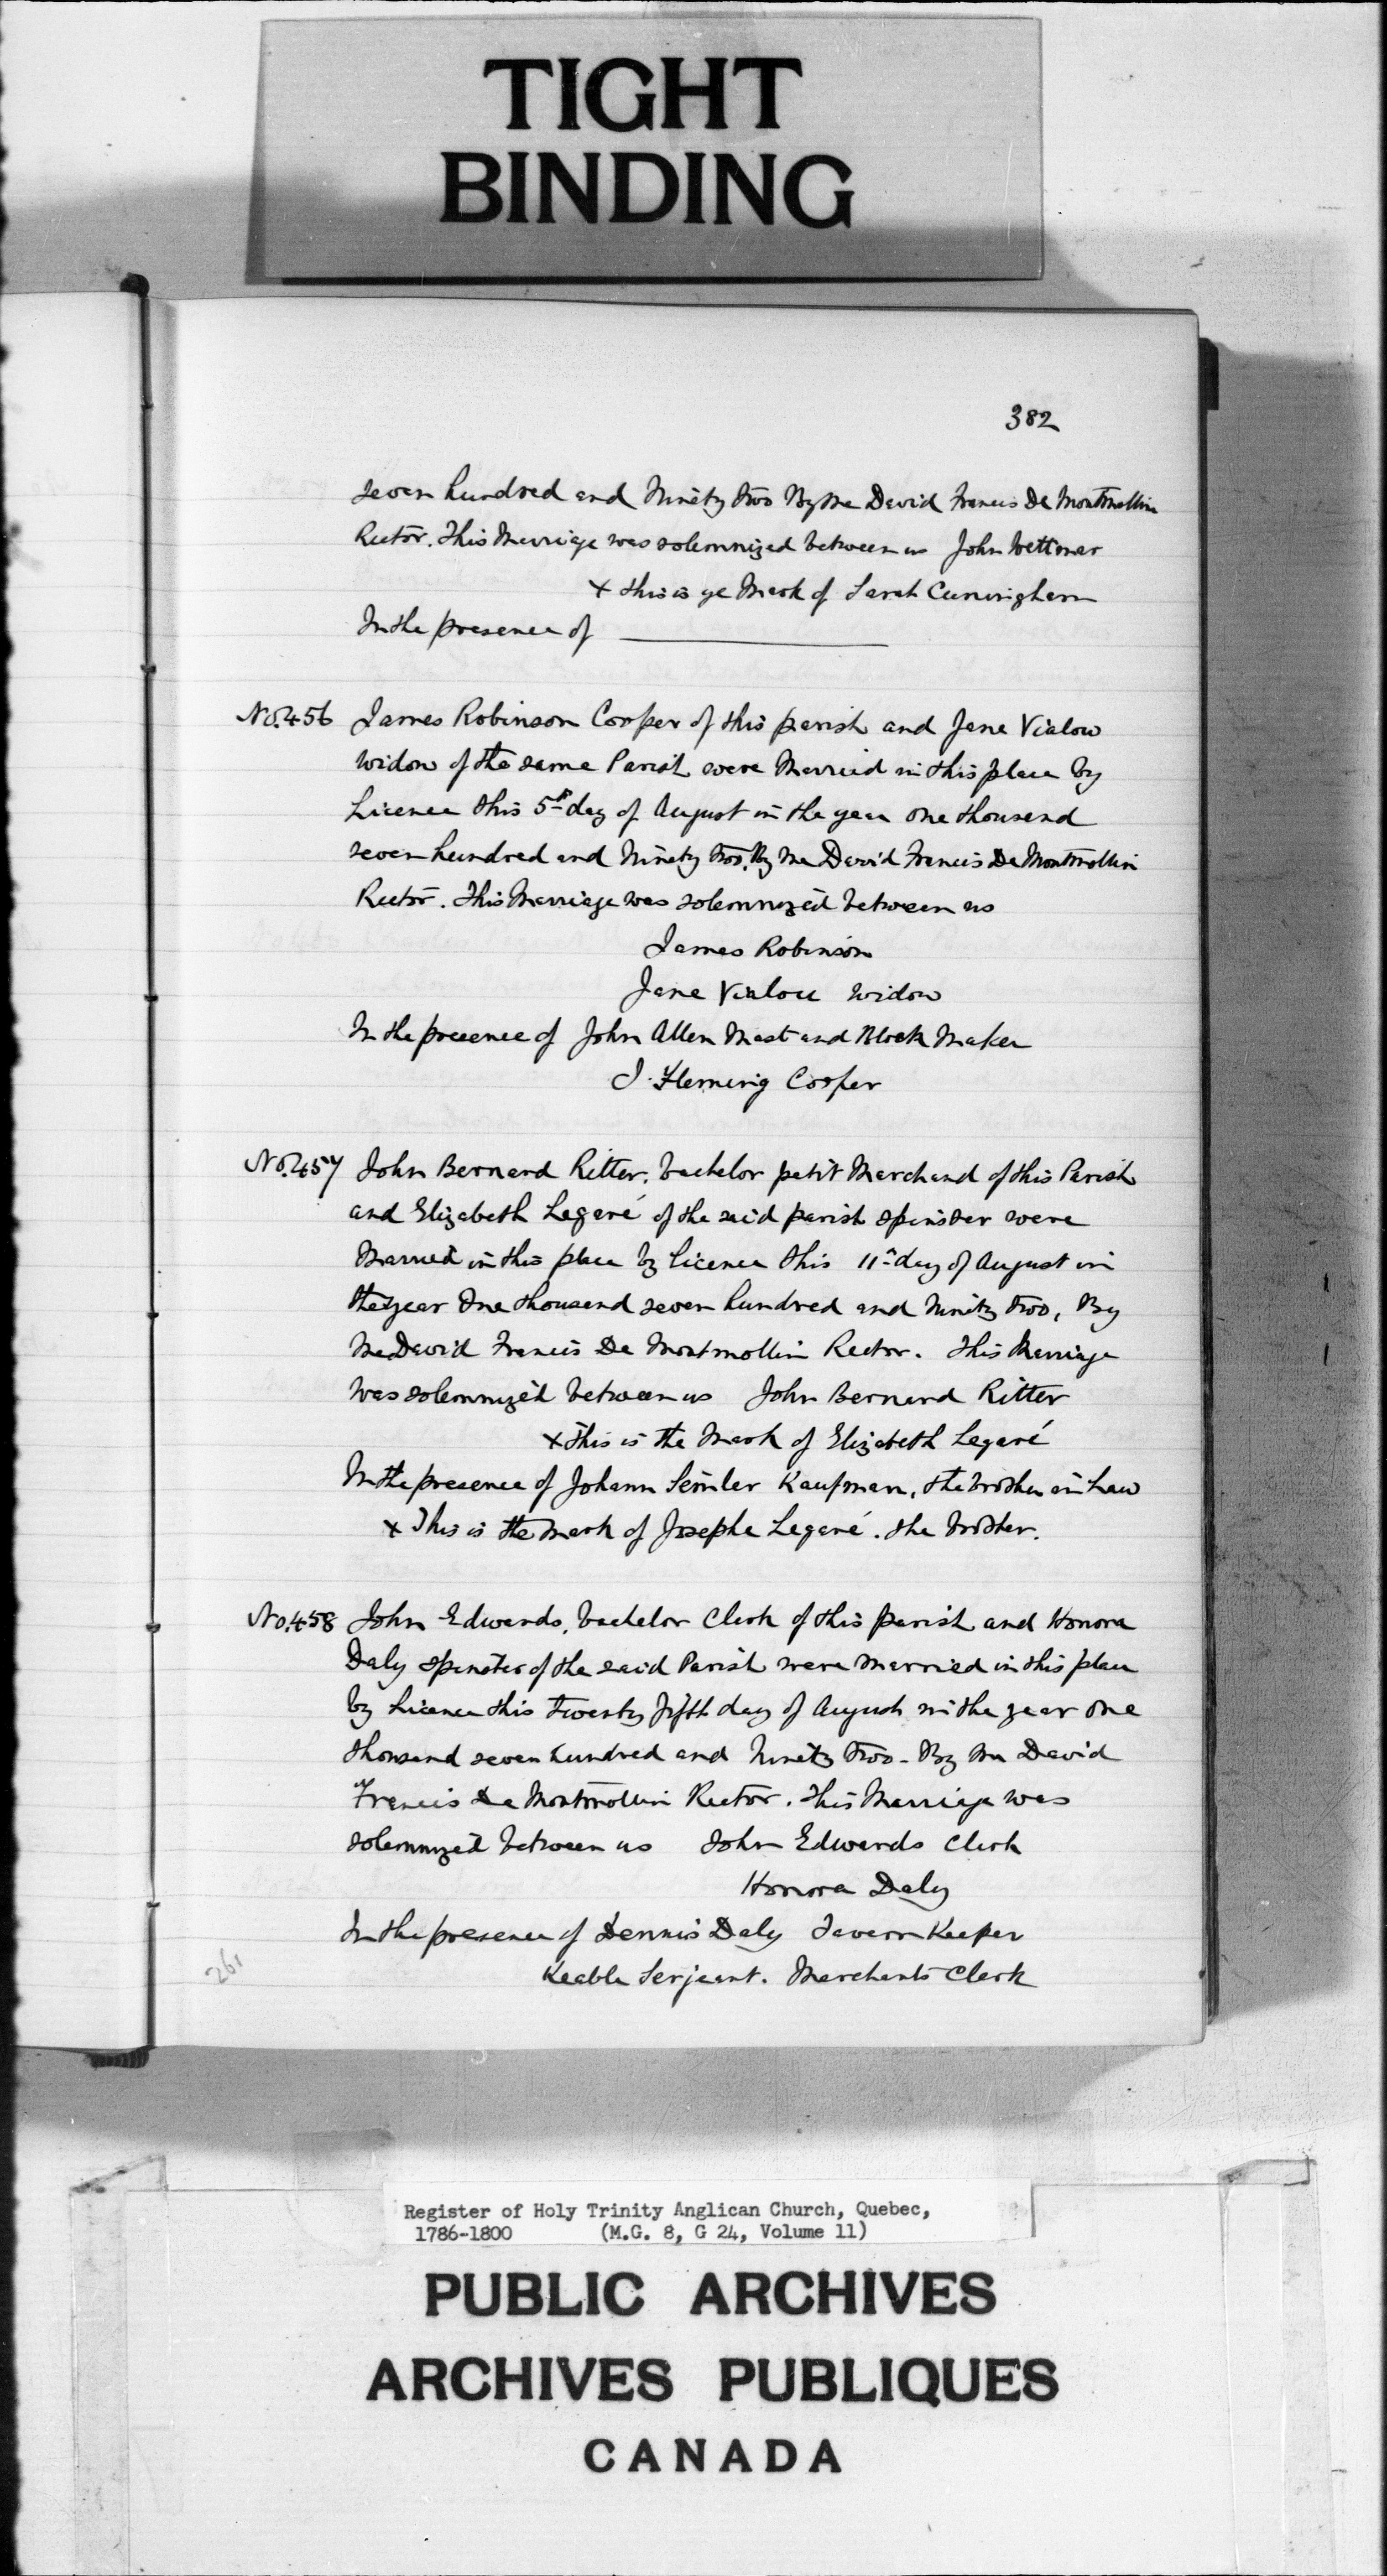 TIGHT
BINDING
382
seven hundred and Ninety two By me David Francis De Montmollin
Rector. This Marriage was solemnized between us John Wettmar
x this is ye Mark of Sarah Cunningham
In the presence of
No. 456 James Robinson Cooper of this parish and Jane Vialou
Widow of the same Parish were Married in this place by
Licence this 5th day of August in the year one thousand
seven hundred and Ninety two. By me David Francis De Montmollin
Rector. This Marriage was solemnized between us
James Robinson
Jane Vialou Widow
In the presence of John Allen Mast and Block Maker
J. Fleming Cooper
No. 457 John Bernard Ritter, bachelor petit Marchand of this Parish
and Elizabeth Legaré of the said parish spinster were
Married in this place by licence this 11th day of August in
the year One thousand seven hundred and Ninety two, By
me David Francis De Montmollin Rector. This Marriage
was solemnized between us John Bernard Ritter
x This is the Mark of Elizabeth Legaré
In the presence of Johann Semler Kaufman, the brother in Law
x This is the mark of Josephe Legaré. the brother.
No. 458 John Edwards, bachelor Clerk of this parish and Honora
Daly spinster of the said Parish were Married in this place
by Licence this twenty fifth day of August in the year one
thousand seven hundred and Ninety two - By me David
Francis De Montmollin Rector. This Marriage was
solemnized between us John Edwards Clerk
Honora Daly
In the presence of Dennis Daly Tavern Keeper
Keable Serjeant. Merchants Clerk
261
Register of Holy Trinity Anglican Church, Quebec,
1786-1800 (M.G. 8, G 24, Volume 11)
PUBLIC ARCHIVES
ARCHIVES PUBLIQUES
CANADA